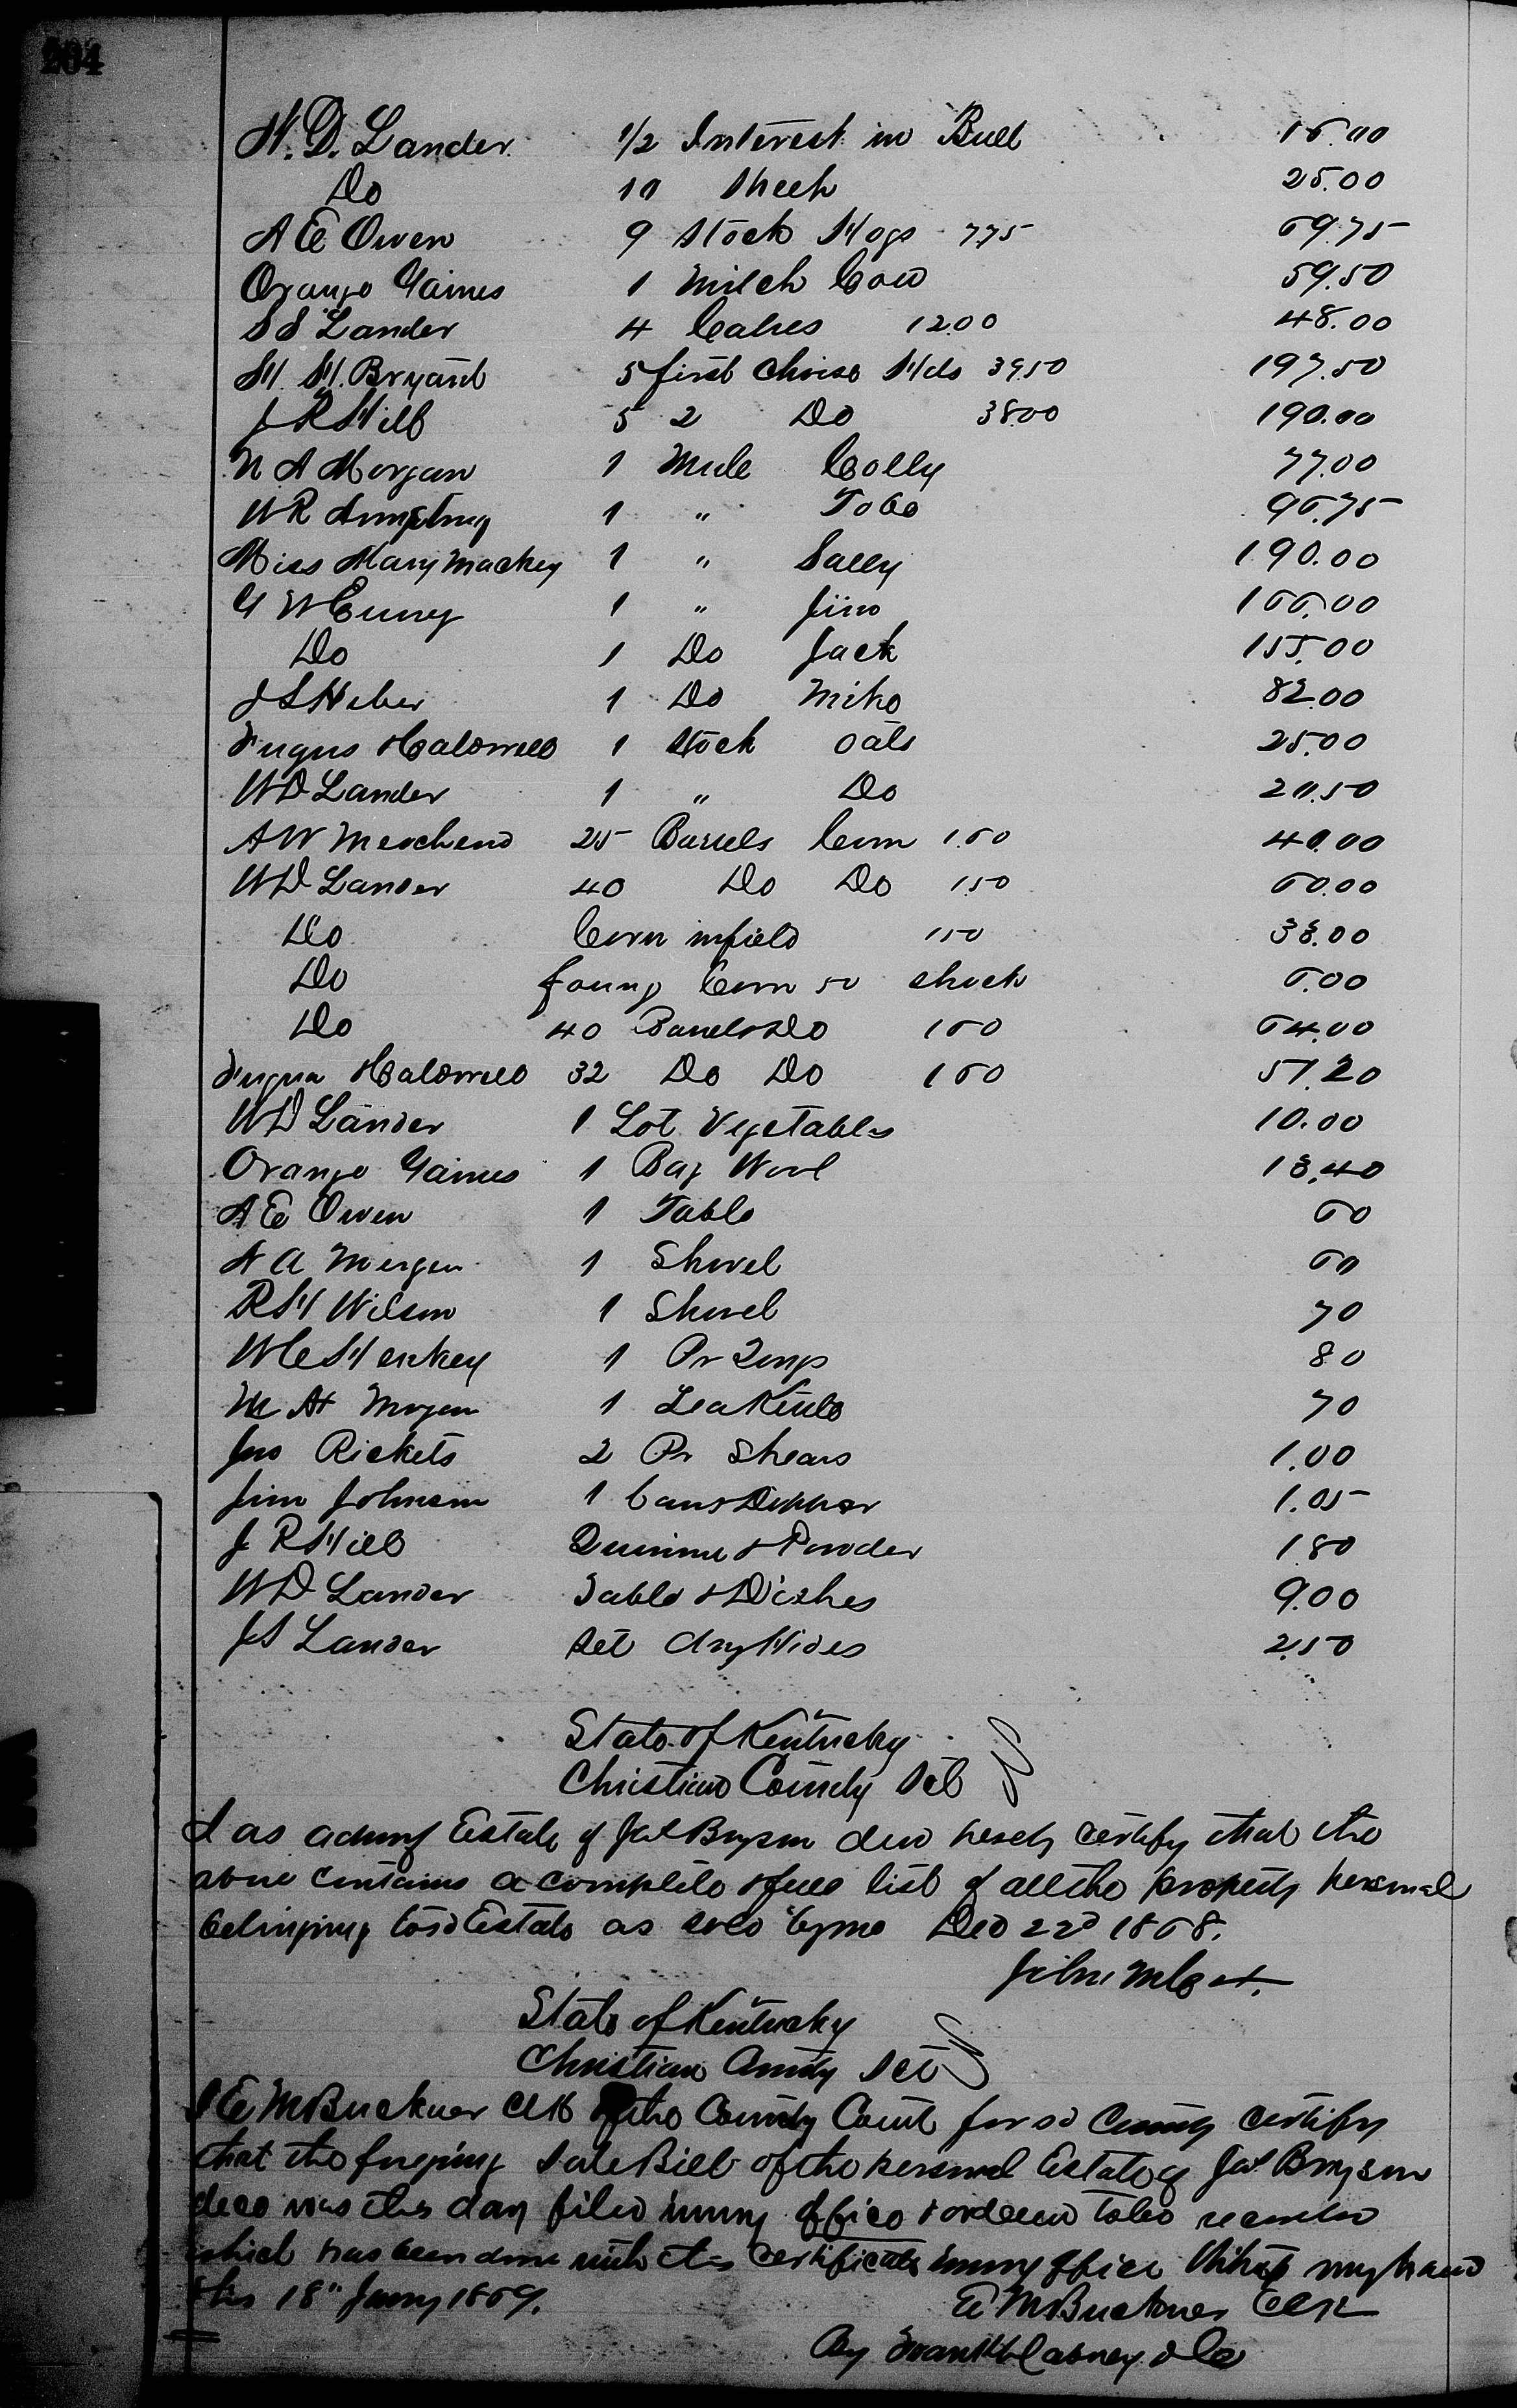 204
W. D. Lander 1/2 Interest in Bull 16.00
Do 10 Sheep 25.00
A E Owen 9 Stock Hogs 7.75 69.75
Orange Gaines 1 Milch Cow 59.50
S S Lander 4 Calves 12.00 48.00
H. H. Bryant 5 first Choise Hds 39.50 197.50
J R Hill 5 2 Do 38.00 190.00
N A Morgan 1 Mule Colly 77.00
W R Armstrong 1 " Tobe 96.75
Miss Mary Mackey 1 " Sally 190.00
G W 1 " Jim 166.00
Do 1 Do Jack 155.00
J S 1 Do Mike 82.00
Fuqua & Caldwell 1 Stack Oats 25.00
W D Lander 1 " Do 20.50
A W 25 Barrels Corn 1.60 40.00
W D Lander 40 Do Do 1.50 60.00
Do Corn infield 150 33.00
Do Corn 50 shock 6.00
Do 40 Barrels Do 160 64.00
Fuqua & Caldwell 32 Do Do 160 51.20
W D Lander 1 Lot Vegetables 10.00
Orange Gaines 1 Bag Wool 13.40
A E Owen 1 Table 60
N A Morgan 1 Shovel 60
R H Wilson 1 Shovel 70
W C 1 Pr Tongs 80
Morgan 1 Tea Kettle 70
Jno Rickets 2 Pr Shears 1.00
Jim Johnson 1 Can & Pepper 1.05
J R Hill Quinine & Powder 1.80
W D Lander Table & Dishes 9.00
J S Lander Set dry Hides 2.50
State of Kentucky
Christian County Sct
I as admr of Estate of Jas Bryson decd hereby certify that the
above contains a complete & full list of all the property personal
belonging to sd Estate as sold by me Dec 22d 1868.
John
State of Kentucky
Christian County Sct
I E M Buckner Clk of the County Court for sd County certify
that the foregoing Sale Bill of the personal Estate of Jas Bryson
decd was this day filed in my office & ordered to be recorded
which has been done with this certificate in my office Witness my hand
this 18" Jany 1869.
E M Buckner Clk
By Frank H Dabney D C